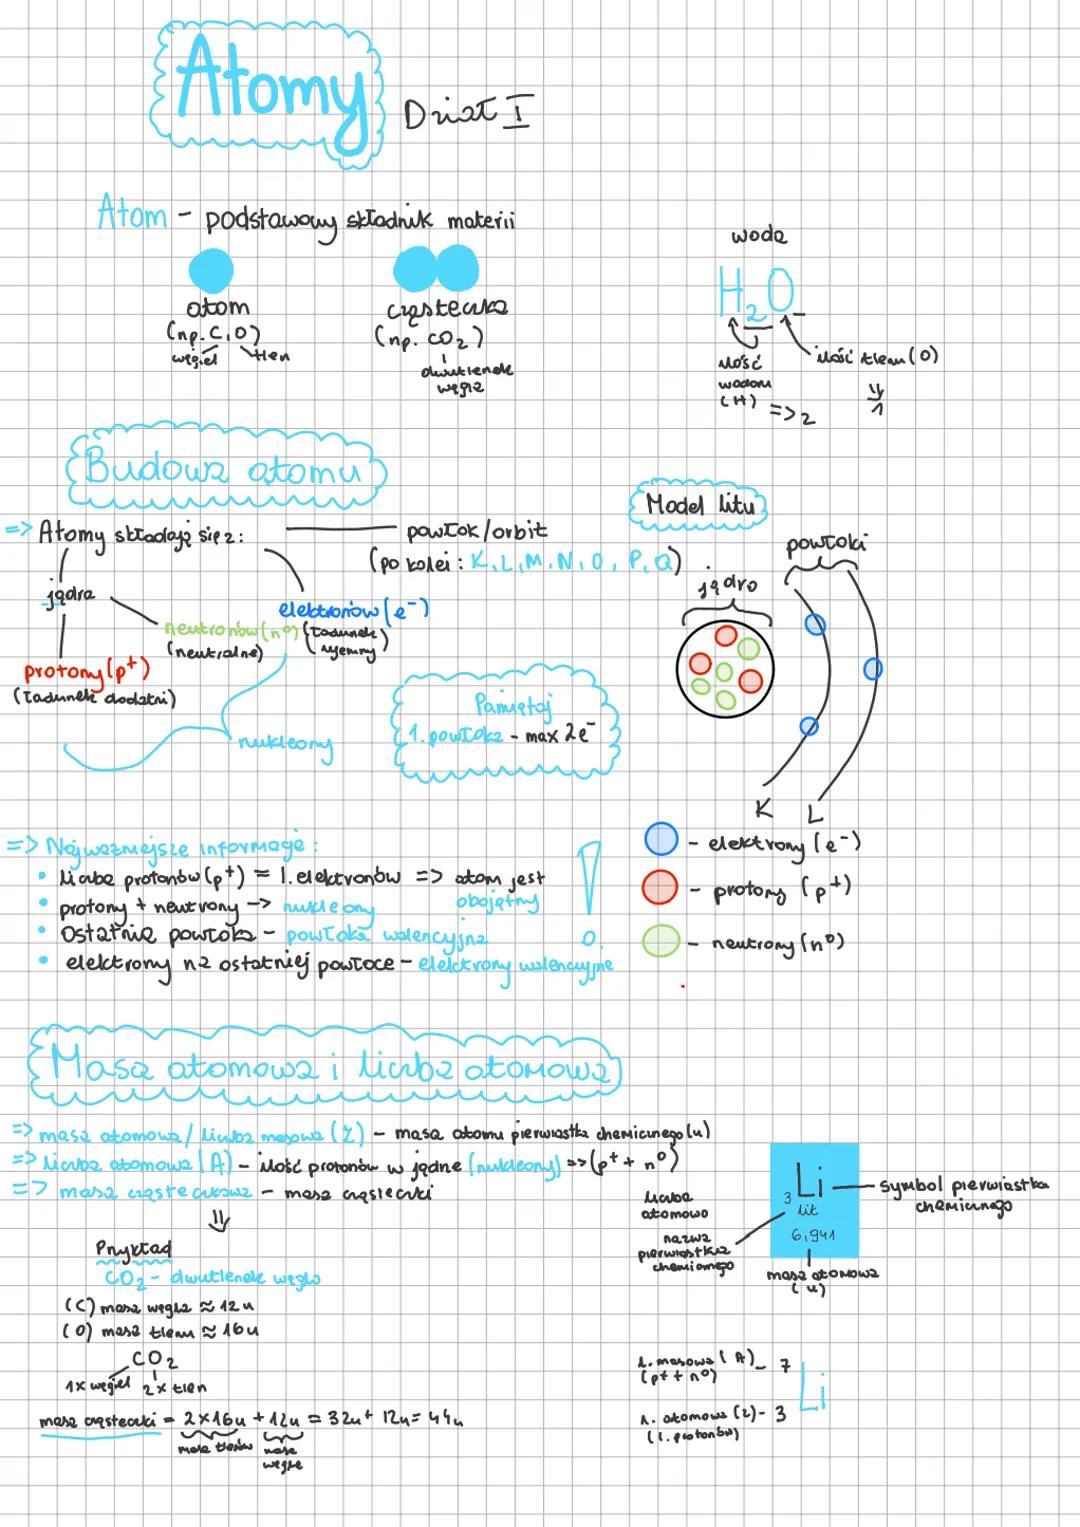 Atomy
Dział I
Atom - podstawowy składnik materii
atom
(np. C, O)
węgiel tlen
cząsteczka
(np. CO2)
dwutlenek
węgla
woda
H2O
ilość
wodoru
(H)
=> 2
ilość tlenu (O)
1
Budowa atomu
=> Atomy składają się z:
powłok/orbit
(po kolei: K, L, M, N, O, P, Q)
jądra
elektronów (e⁻)
(ładunek
ujemny)
neutronów (n⁰)
(neutralne)
protony (p⁺)
(ładunek dodatni)
nukleony
Pamiętaj
1. powłoka - max 2e⁻
Model litu
powłoki
jądro
K L
- elektrony (e⁻)
- protony (p⁺)
- neutrony (n⁰)
=> Najważniejsze informacje:
• liczba protonów (p⁺) = l. elektronów => atom jest
obojętny
• protony + neutrony -> nukleony
• Ostatnia powłoka - powłoka walencyjna
• elektrony na ostatniej powłoce - elektrony walencyjne
Masa atomowa i liczba atomowa
=> masa atomowa / liczba masowa (Z) - masa atomu pierwiastka chemicznego (u)
=> liczba atomowa (A) - ilość protonów w jądrze (nukleony) => (p⁺ + n⁰)
=> masa cząsteczkowa - masa cząsteczki
Przykład
CO2 - dwutlenek węgla
(C) masa węgla ≈ 12u
(O) masa tlenu ≈ 16u
CO2
1x węgiel 2x tlen
masa cząsteczki = 2×16u + 12u = 32u + 12u = 44u
masa tlenów
masa
węgla
liczba
atomowa
nazwa
pierwiastka
chemicznego
3 Li
lit
6,941
symbol pierwiastka
chemicznego
masa atomowa
(u)
l. masowa (A) - 7
(p⁺ + n⁰)
Li
l. atomowa (Z) - 3
(l. protonów)